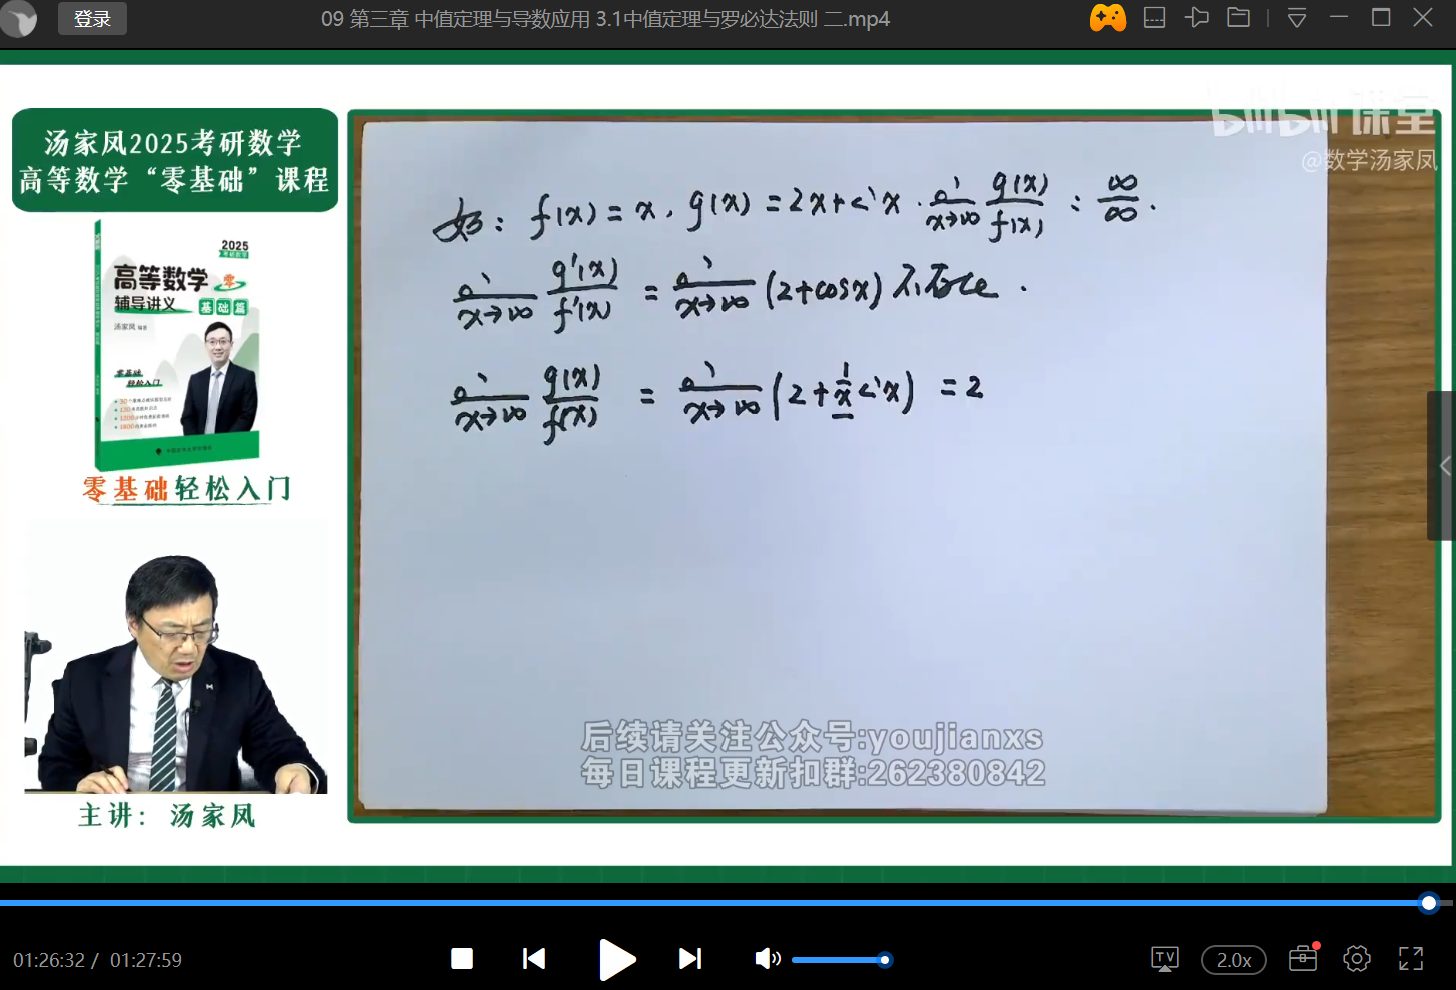 登录
09 第三章 中值定理与导数应用 3.1中值定理与罗必达法则 二.mp4
汤家凤2025考研数学
高等数学“零基础”课程
2025
考研数学
高等数学 零
辅导讲义 基础篇
汤家凤 编著
零基础
轻松入门
零基础轻松入门
主讲：汤家凤
bilibili 课堂
@数学汤家凤
如: f(x) = x, g(x) = 2x+sin x. lim x→∞ g(x)/f(x) : ∞/∞.
lim x→∞ g'(x)/f'(x) = lim x→∞ (2+cosx) 不存在.
lim x→∞ g(x)/f(x) = lim x→∞ (2+1/x sin x) = 2
后续请关注公众号:youjianxs
每日课程更新扣群:262380842
01:26:32 / 01:27:59
TV
2.0x